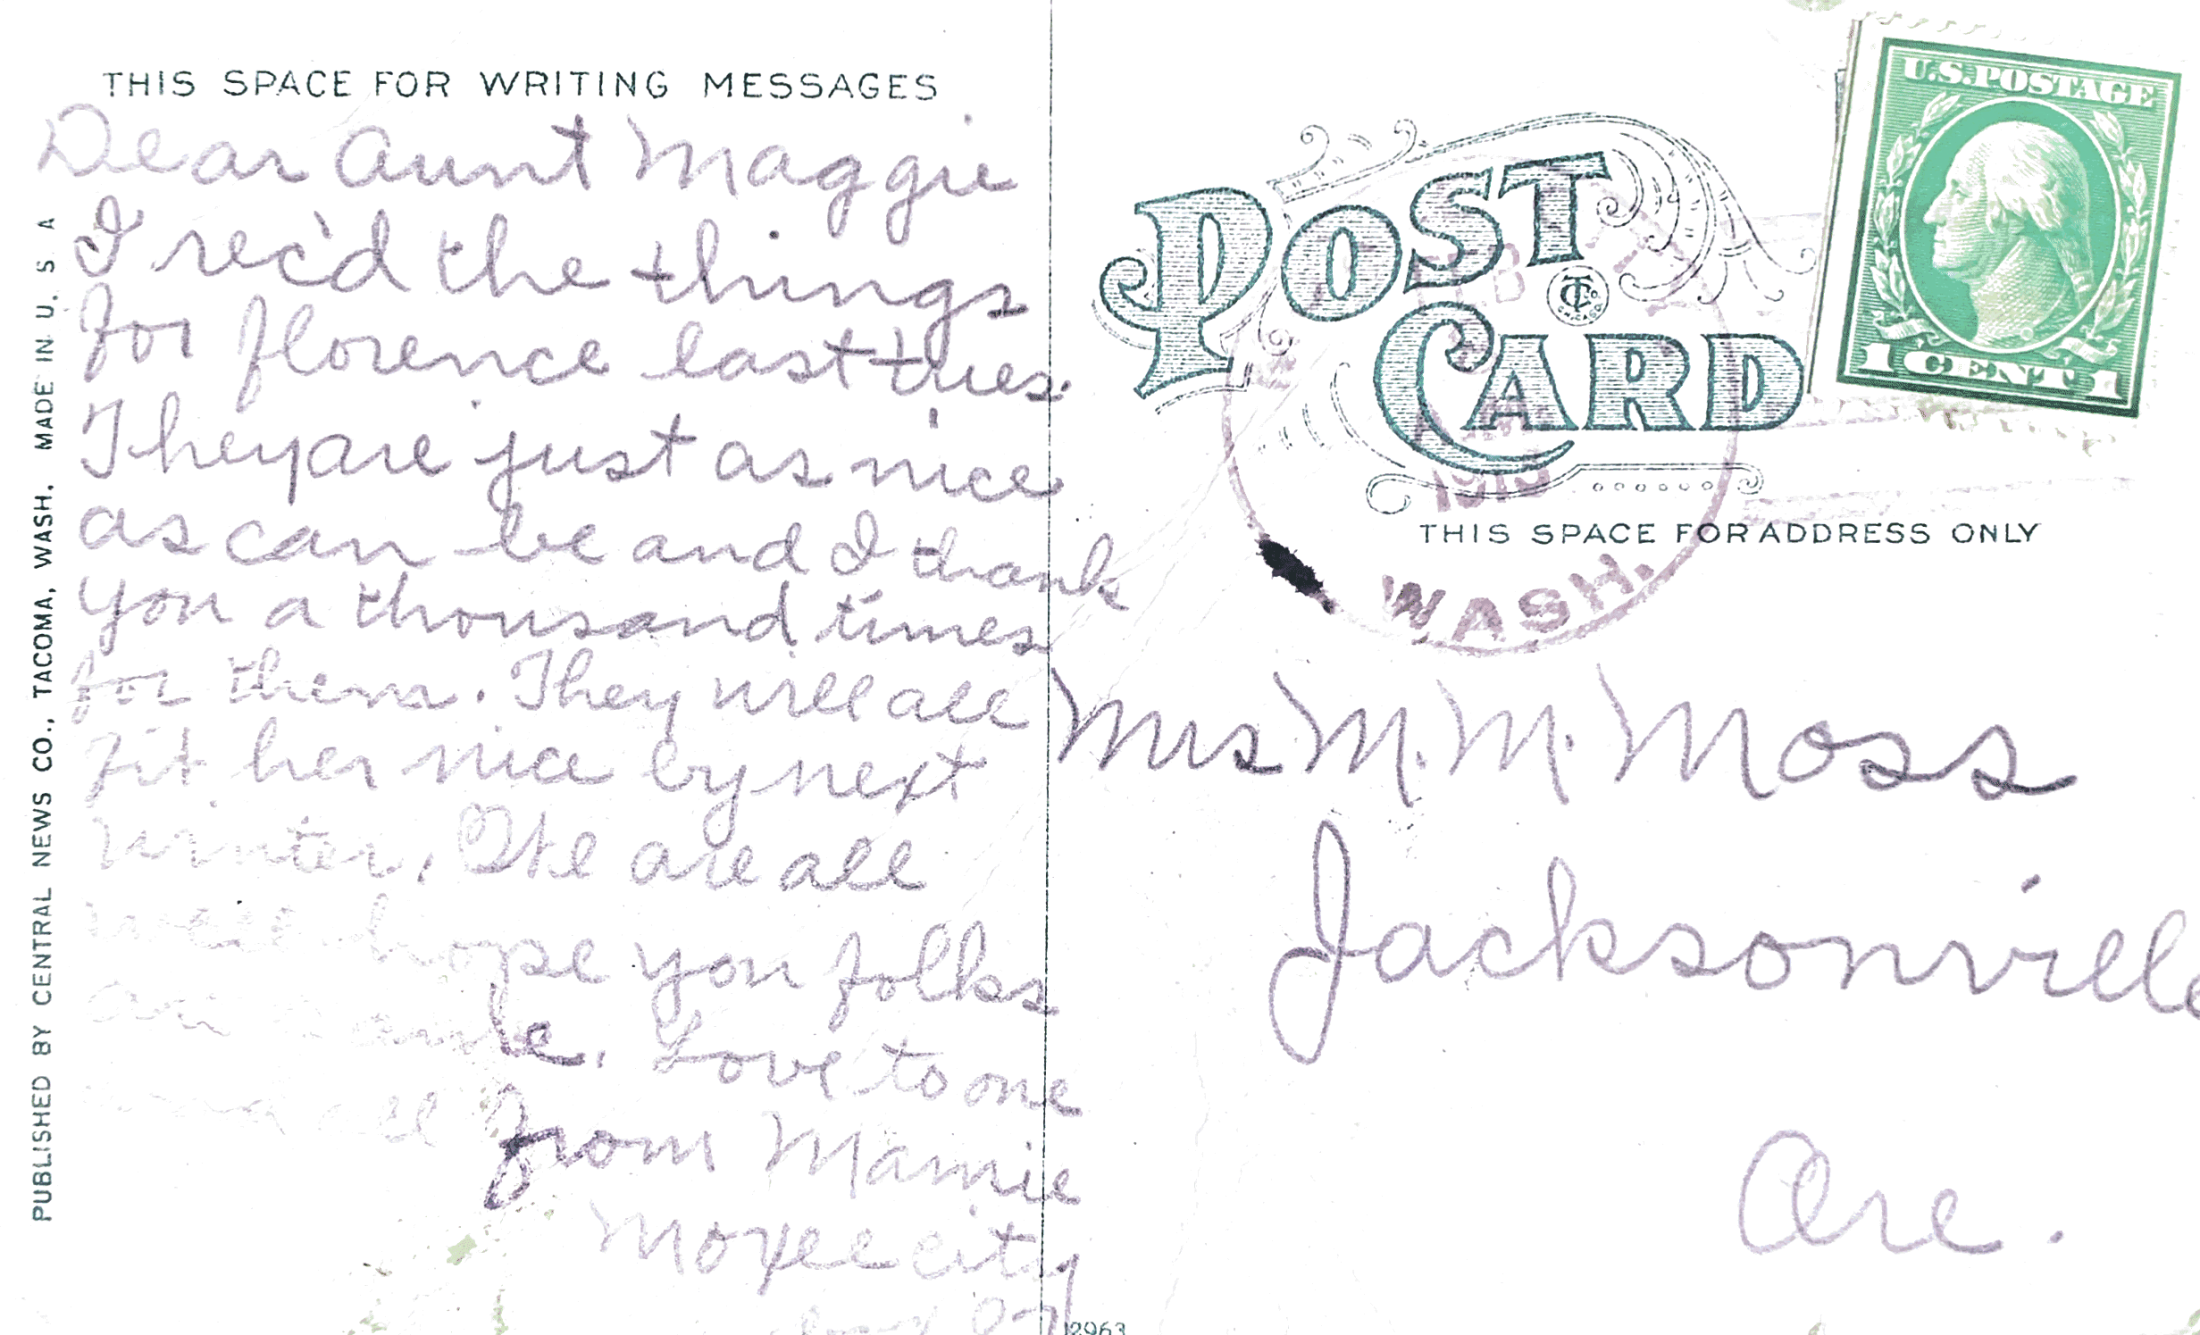 THIS SPACE FOR WRITING MESSAGES
Dear Aunt Maggie
I rec'd the things
for florence last tues.
They are just as nice
as can be and I thank
you a thousand times
for them. They will all
fit her nice by next
winter. We are all
well hope you folks
are same. Love to one
and all from Mamie
Moxee City
PUBLISHED BY CENTRAL NEWS CO., TACOMA, WASH. MADE IN U. S. A
POST CARD
CHICAGO
THIS SPACE FOR ADDRESS ONLY
U.S. POSTAGE
1 CENT 1
WASH.
Mrs M. M. Moss
Jacksonville
Ore.
12963